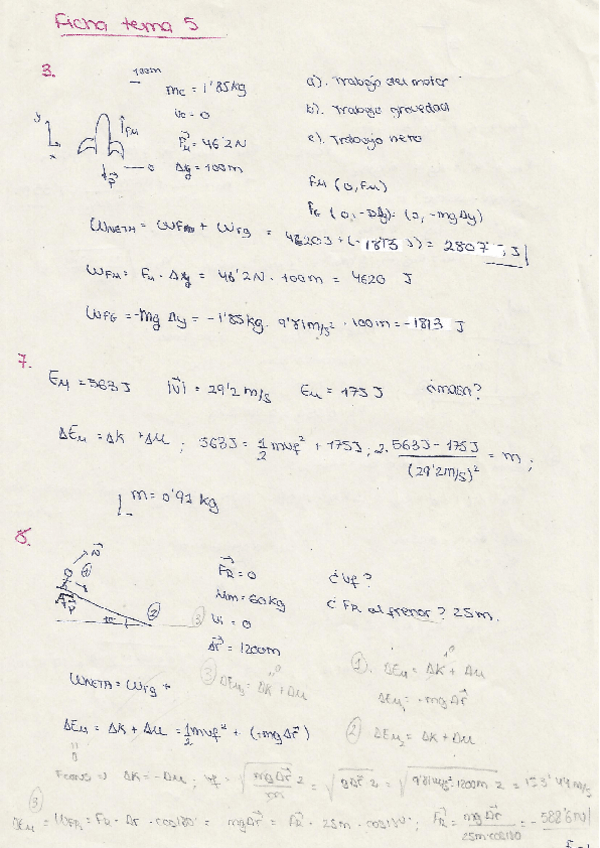 Ficha tema 5
3.
100m
mc = 1'85kg
Vc = 0
FM = 46'2N
Δy = 100m
a). Trabajo del motor
b). Trabajo gravedad
c). Trabajo neto
y
x
FM
P
0
FM (0, FM)
FG (0, -PΔy) = (0, -mgΔy)
WNETA = WFM + WFG = 4620J + (-1813 J) = 2807 J
WFM = FM · Δy = 46'2N · 100m = 4620 J
WFG = -mg Δy = -1'85kg · 9'81m/s² · 100m = -1813 J
7.
EM = 563J |V| = 29'2 m/s Eu = 175J ¿masa?
ΔEM = ΔK + ΔU ; 563J = 1/2 mvf² + 175J ; 2 · 563J - 175J / (29'2m/s)² = m ;
m = 0'91 kg
8.
N
1
P
2
3
FR = 0
Mm = 60kg
Vi = 0
Δr = 1200m
¿Vf?
¿FR al frenar? 25m.
WNETA = WFG +
3 ΔEM3 = ΔK + ΔU
0
1. ΔEM = ΔK + ΔU
ΔEM = -mgΔr
ΔEM = ΔK + ΔU = 1/2 mvf² + (-mgΔr)
2 ΔEM2 = ΔK + ΔU
0
ΔK = -ΔU ; vf = √mgΔr/m 2 = √gΔr 2 = √9'81m/s² · 1200m · 2 = 153'44 m/s
3
ΔEM = WFR = FR · Δr · cos180° = mgΔr = FR · 25m · cos180° ; FR = mgΔr / 25m cos180 = -588'6N